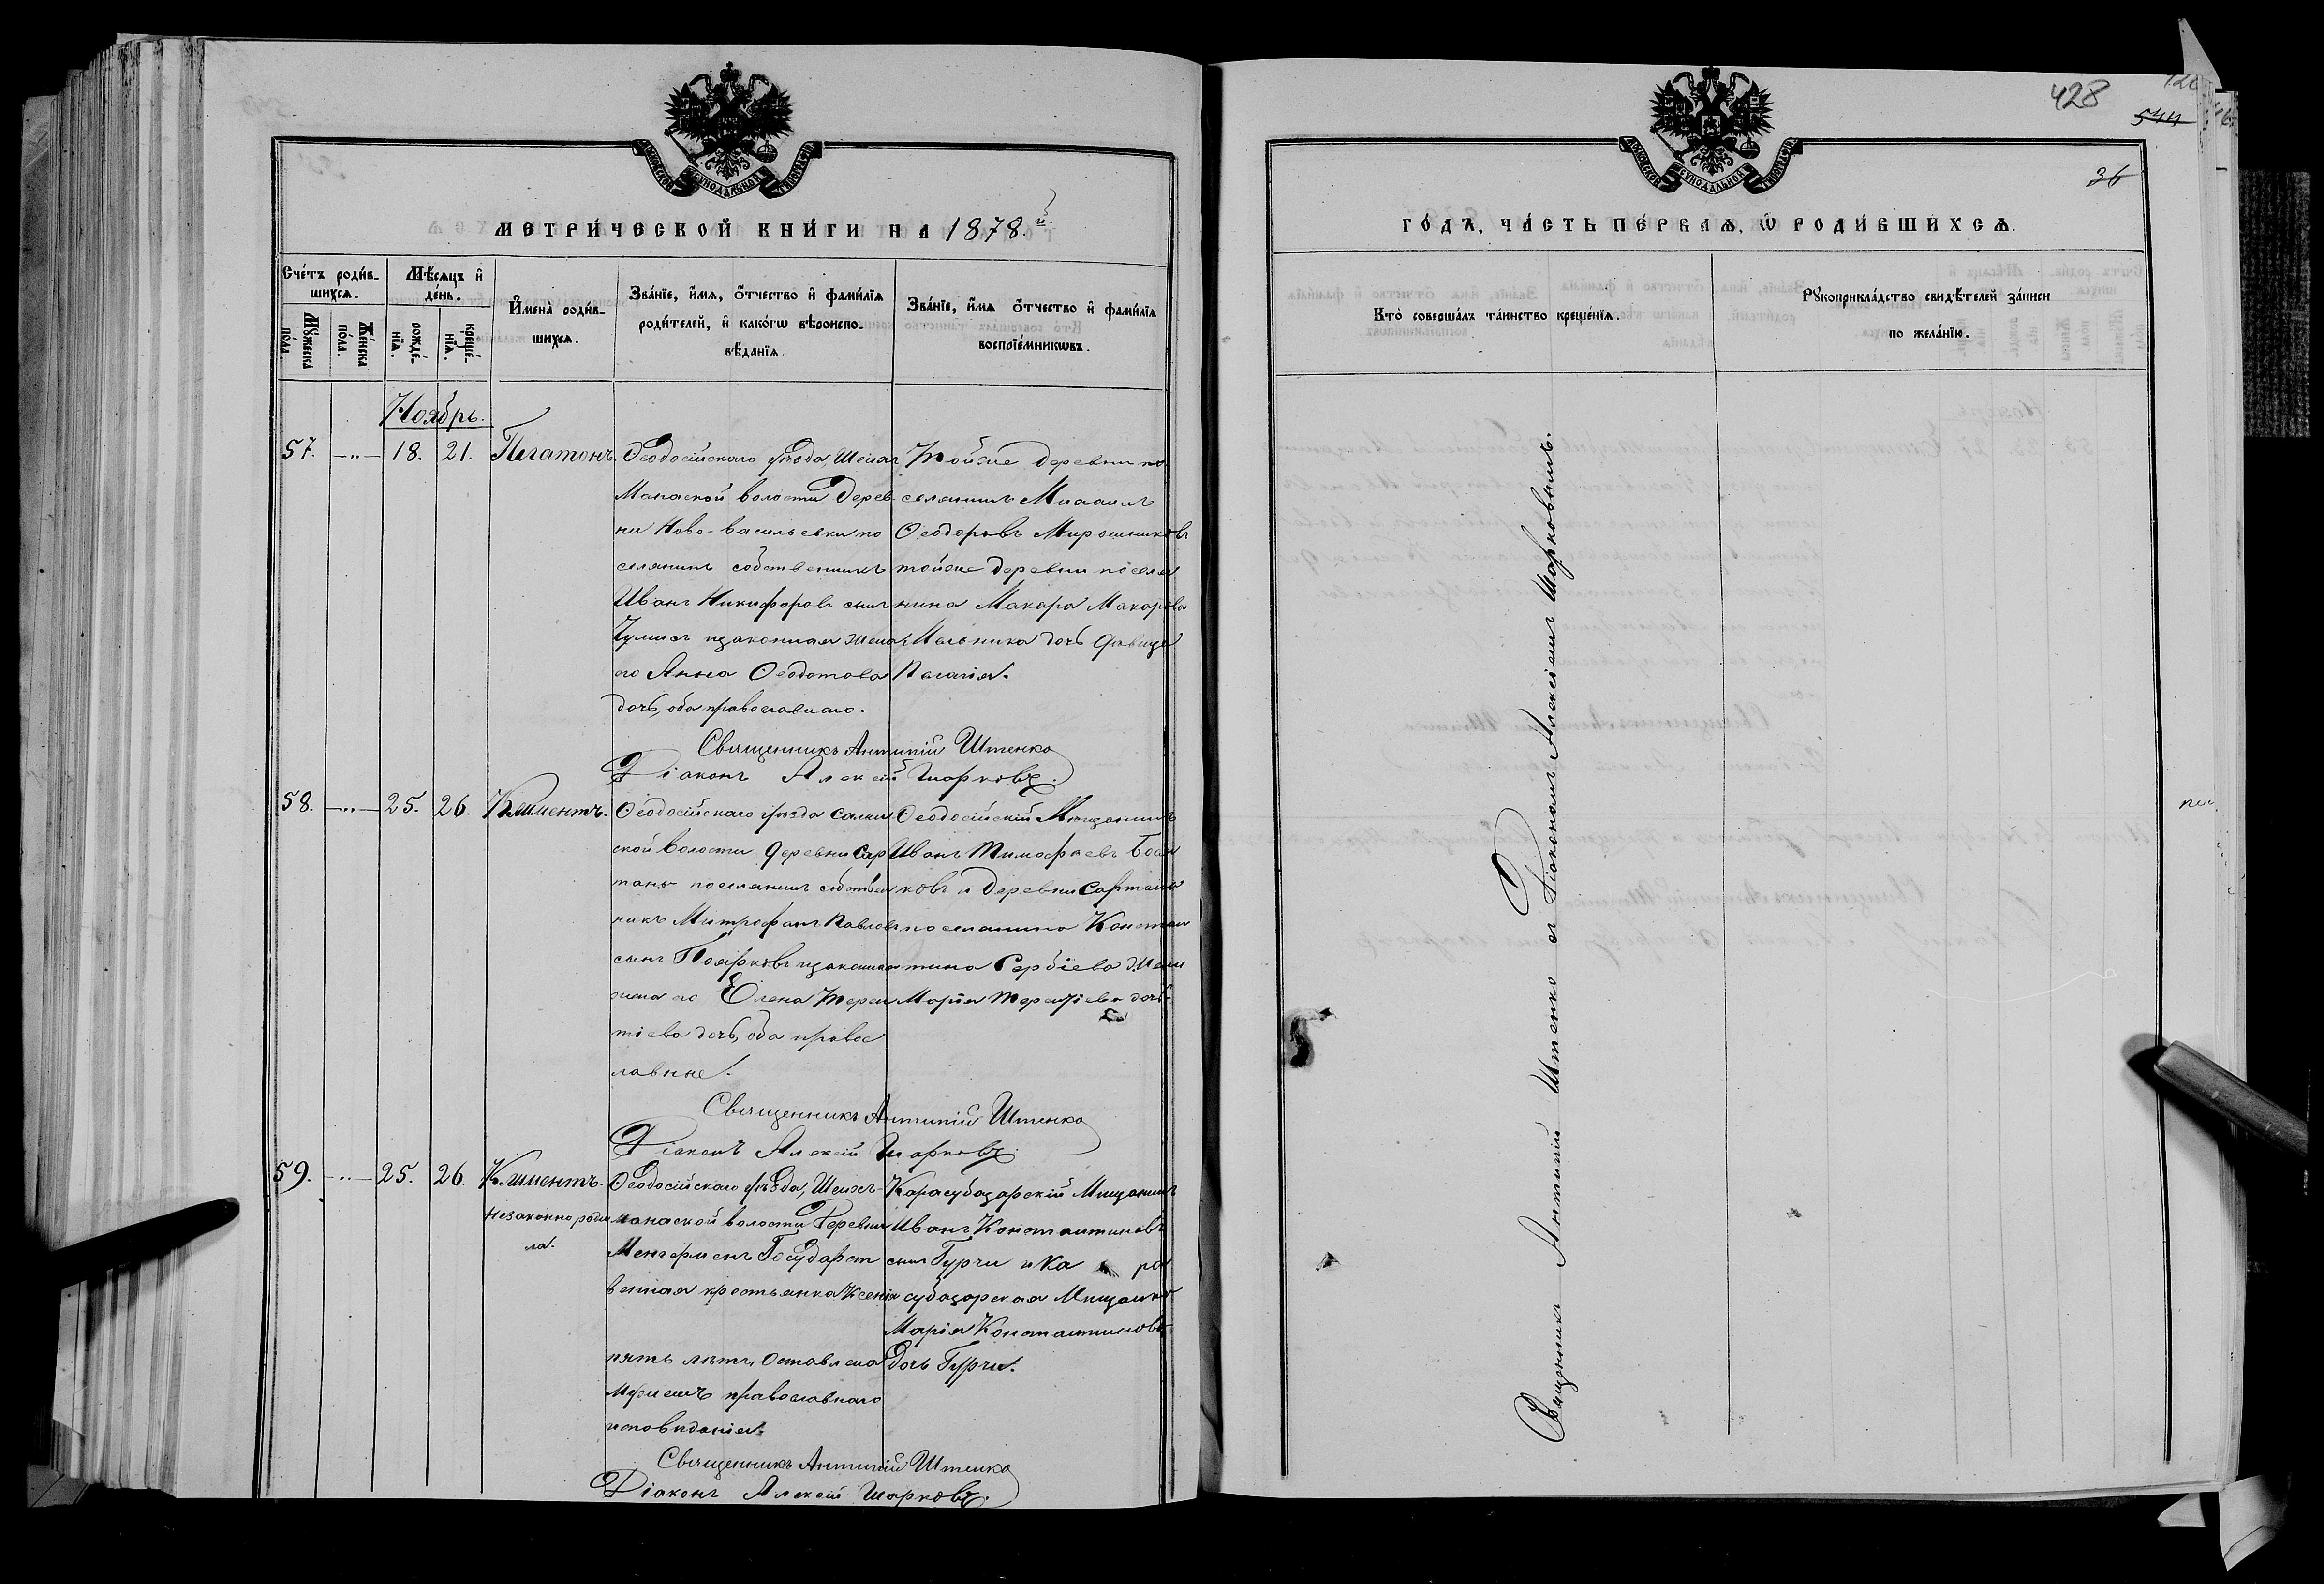 МОСКОВСКОЙ СУНОДАЛЬНОЙ ТИПОГРАФІИ
МЕТРИ́ЧЕСКОЙ КНИ́ГИ НА 1878.й
Сче́тъ роди́в-
шихся.
Мѣ́сяцъ и҆
де́нь.
Мꙋ́жеска
по́ла
Же́нска
по́ла.
рожде́-
нїѧ.
креще́-
нїѧ.
И҆мена̀ роди́в-
шихсѧ.
Зва́нїе, и҆́мѧ, ѻ҆́тчество и҆ фами́лїѧ
роди́телей, и҆ како́гѡ вѣроиспо-
вѣ́данїѧ.
Зва́нїе, и҆́мѧ ѻ҆́тчество и҆ фами́лїѧ
воспрїе́мникѡвъ.
Ноябрь.
57. —„— 18. 21. Платонъ.
Ѳеодосійскаго уѣзда, Шейхъ
Манаской волости Дерев
ни Ново-Васильевки по
селянинъ собственникъ
Иванъ Никифоровъ сынъ
и законная жена
его Анна Ѳеодотова
дочь, оба православнаго.
Тойже деревни по
селянинъ Михаилъ
Ѳеодоровъ Мирошниковъ
тойже деревни поселя
нина Макара Макарова
Мельника дочь дѣвица
Пелагія.
Священникъ Антипій Штенко
Діаконъ Алексій Шарковъ.
58. —„— 25. 26. Климентъ.
Ѳеодосійскаго уѣзда Салын
ской волости деревни Сар
танъ поселянинъ собствен
никъ Митрофанъ Павловъ
сынъ Поярковъ и законная
жена его Елена Терен
тіева дочь, оба правос
лавные.
Ѳеодосійскій Мѣщанинъ
Иванъ Тимофѣевъ
ковъ и деревни Сартанъ
поселянина Констан
тина Сербіева жена
Марія Терентіева дочь.
Священникъ Антипій Штенко
Діаконъ Алексій Шарковъ
59. —„— 25. 26. Климентъ.
незаконно рожд
Ѳеодосійскаго уѣзда, Шейхъ-
Манаской волости Деревни
Менгерменъ Государст
венная крестьянка Ксенія
пять лѣтъ, оставлена
мужемъ православнаго
исповѣданія.
Карасубазарскій Мѣщанинъ
Иванъ Константиновъ
сынъ Гурчи и Ка ра
субазарская Мѣщанка
Марія Константинова
дочь Гурчи.
Священникъ Антипій Штенко
Діаконъ Алексій Шарковъ.
428
544
36
МОСКОВСКОЙ СУНОДАЛЬНОЙ ТИПОГРАФІИ
ГО́ДЪ, ЧА́СТЬ ПЕ́РВАѦ, Ѡ҆ РОДИ́ВШИХСѦ.
Кто̀ соверша́лъ та́инство креще́нїѧ.
Рꙋкоприкла́дство свидѣ́телей за́писи
по жела́нїю.
Священникъ Антипій Штенко съ Діакономъ Алексіемъ Шарковымъ.